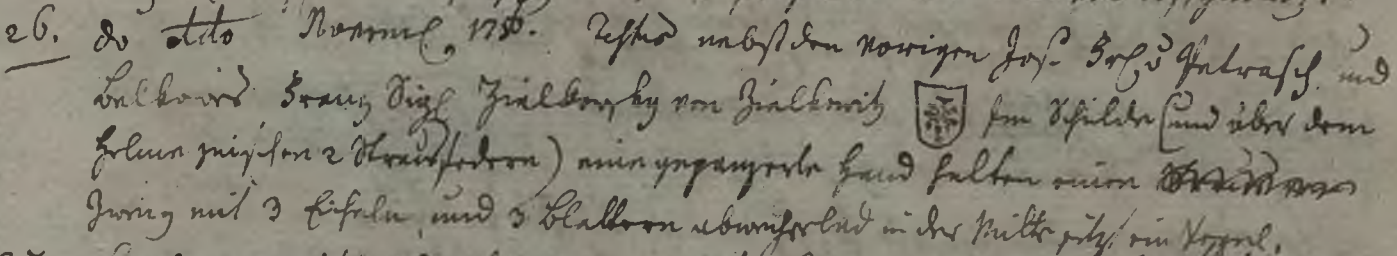 26. do dtto Novemb. 1730. Testes nebst den vorigen Jos. Frh. v Petrasch und
Franz Sigl Zialkowsky von Zialkowitz im Schilde (und über dem
Helme zwischen 2 Strausfedern) eine gepanzerte Hand halten einen
Zweig mit 3 Eicheln, und 3 Blattern abwechselnd in der Mitte sitzt ein Vogel.